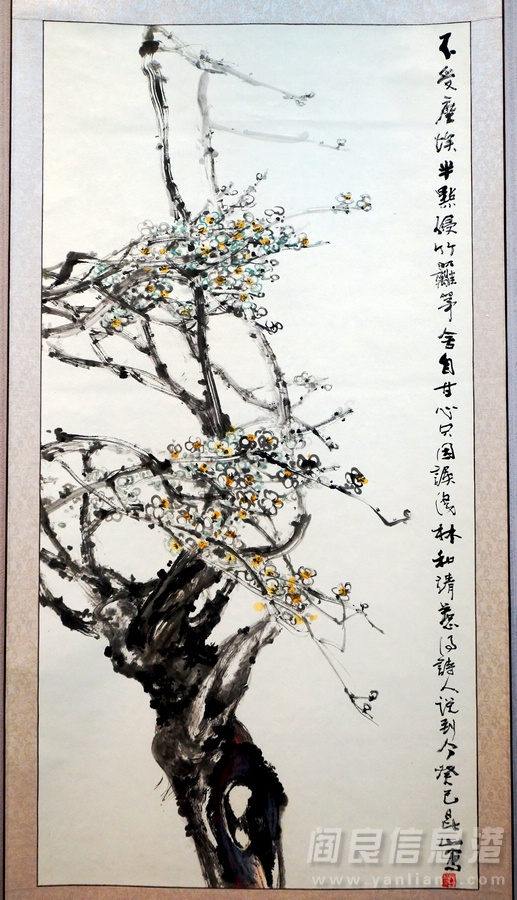 不受尘埃半點侵竹籬茅舍自甘心只因誤識林和靖惹得詩人说到今癸巳昆山寫
阎良信息港
www.yanliang